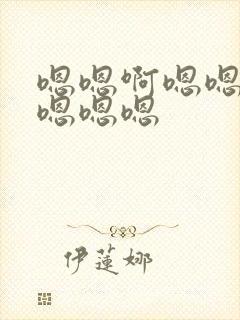 嗯嗯啊嗯嗯
嗯嗯嗯
伊蓮娜